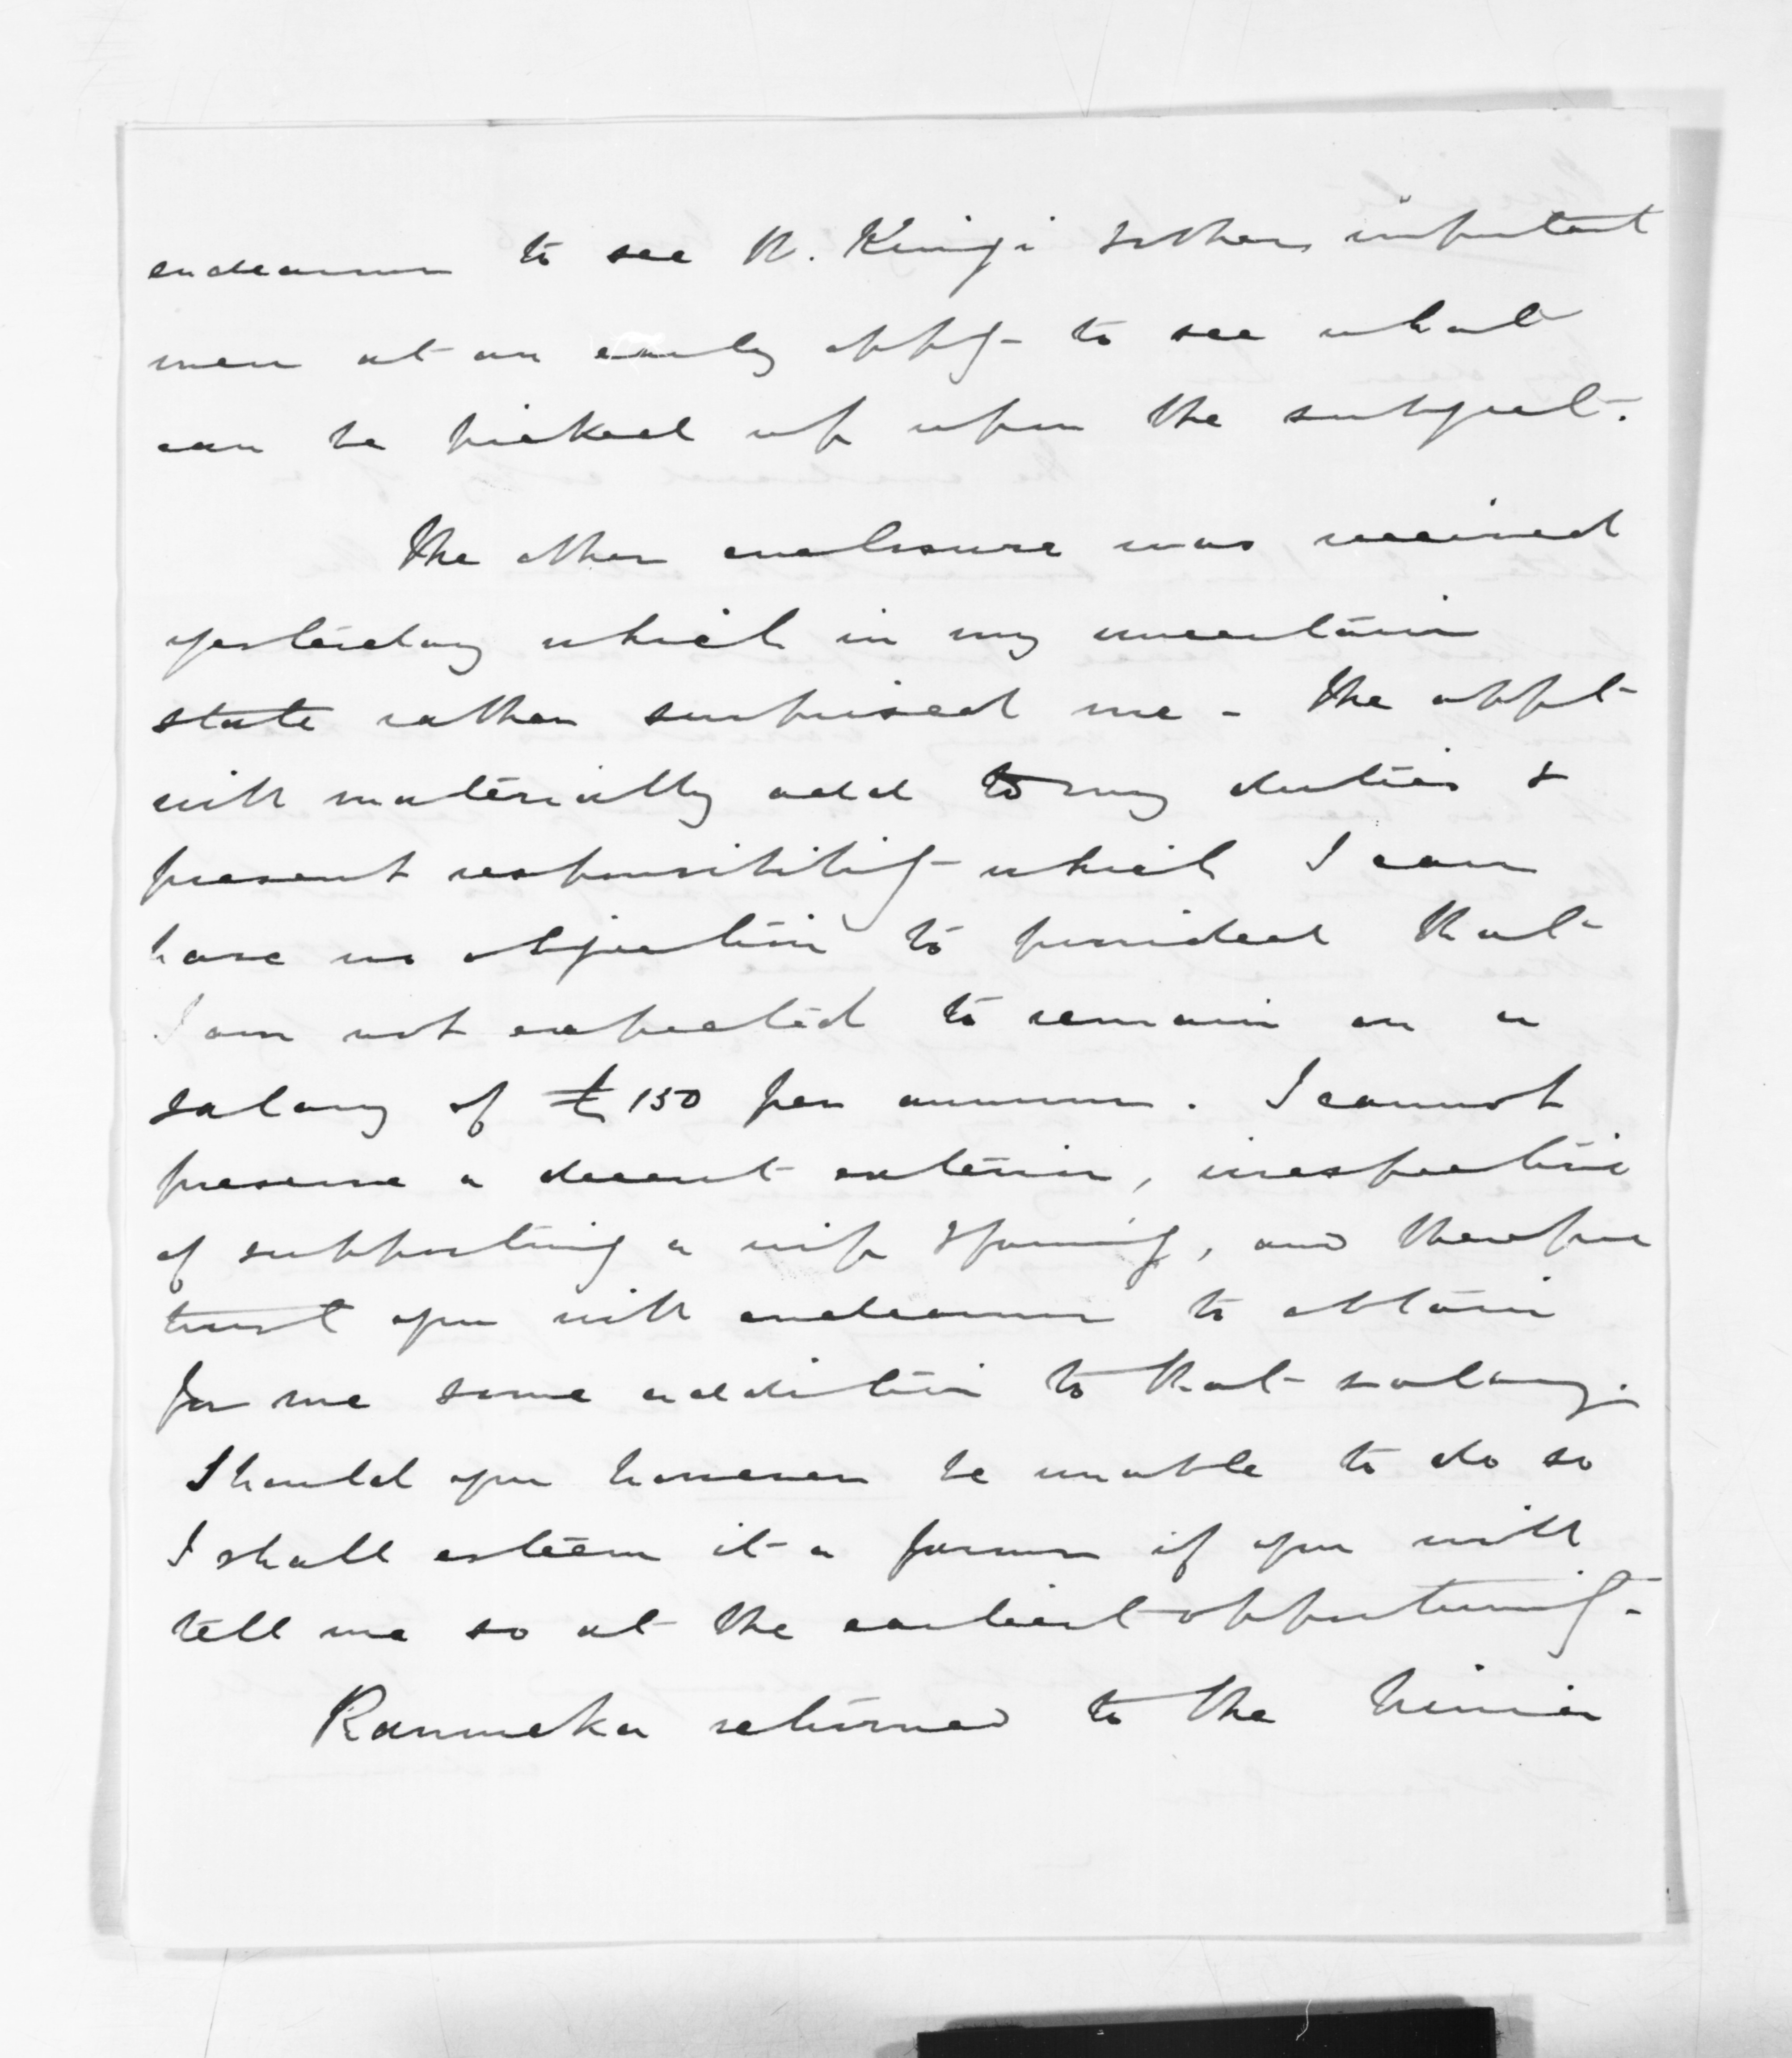 endeavour to see W. Kingi & other important
men at an early oppy- to see what
can be picked up upon the subject.
The other enclosure was received
yesterday which in my uncertain
state rather surprised me - The appt-
will materially add to my duties &
present responsibility which I can
have no objection to provided that
I am not expected to remain on a
salary of £150 per annum. I cannot
preserve a decent exterior, irrespective
of supporting a wife & family, and therefore
trust you will endeavour to obtain
for me some addition to that salary.
Should you however be unable to do so
I shall esteem it a favour if you will
tell me so at the earliest opportunity-
returned to the